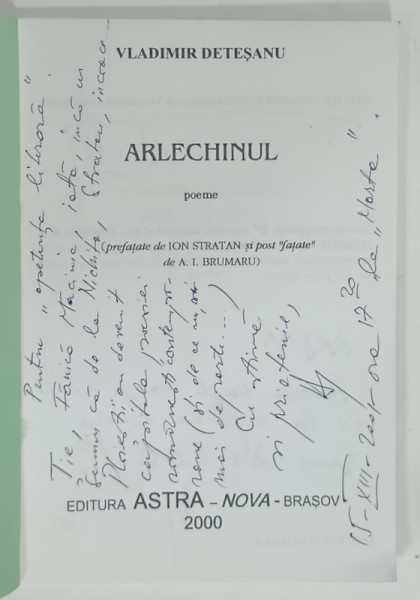 VLADIMIR DETEȘANU
ARLECHINUL
poeme
(prefațate de ION STRATAN și post "fațate"
de A. I. BRUMARU)
EDITURA ASTRA – NOVA - BRAȘOV
2000
Pentru "apetența literară"
Ție, Fănică Măcinic, iată, încă un
semn că de la Nichita, Stratan, încoace
Ploieștii au devenit
capitala poeziei
românești contempo-
rane (și de ce nu, și
mai departe...)
Cu stimă
și prietenie,
15-XIII-2001 - ora 17²⁰ la "Marta".